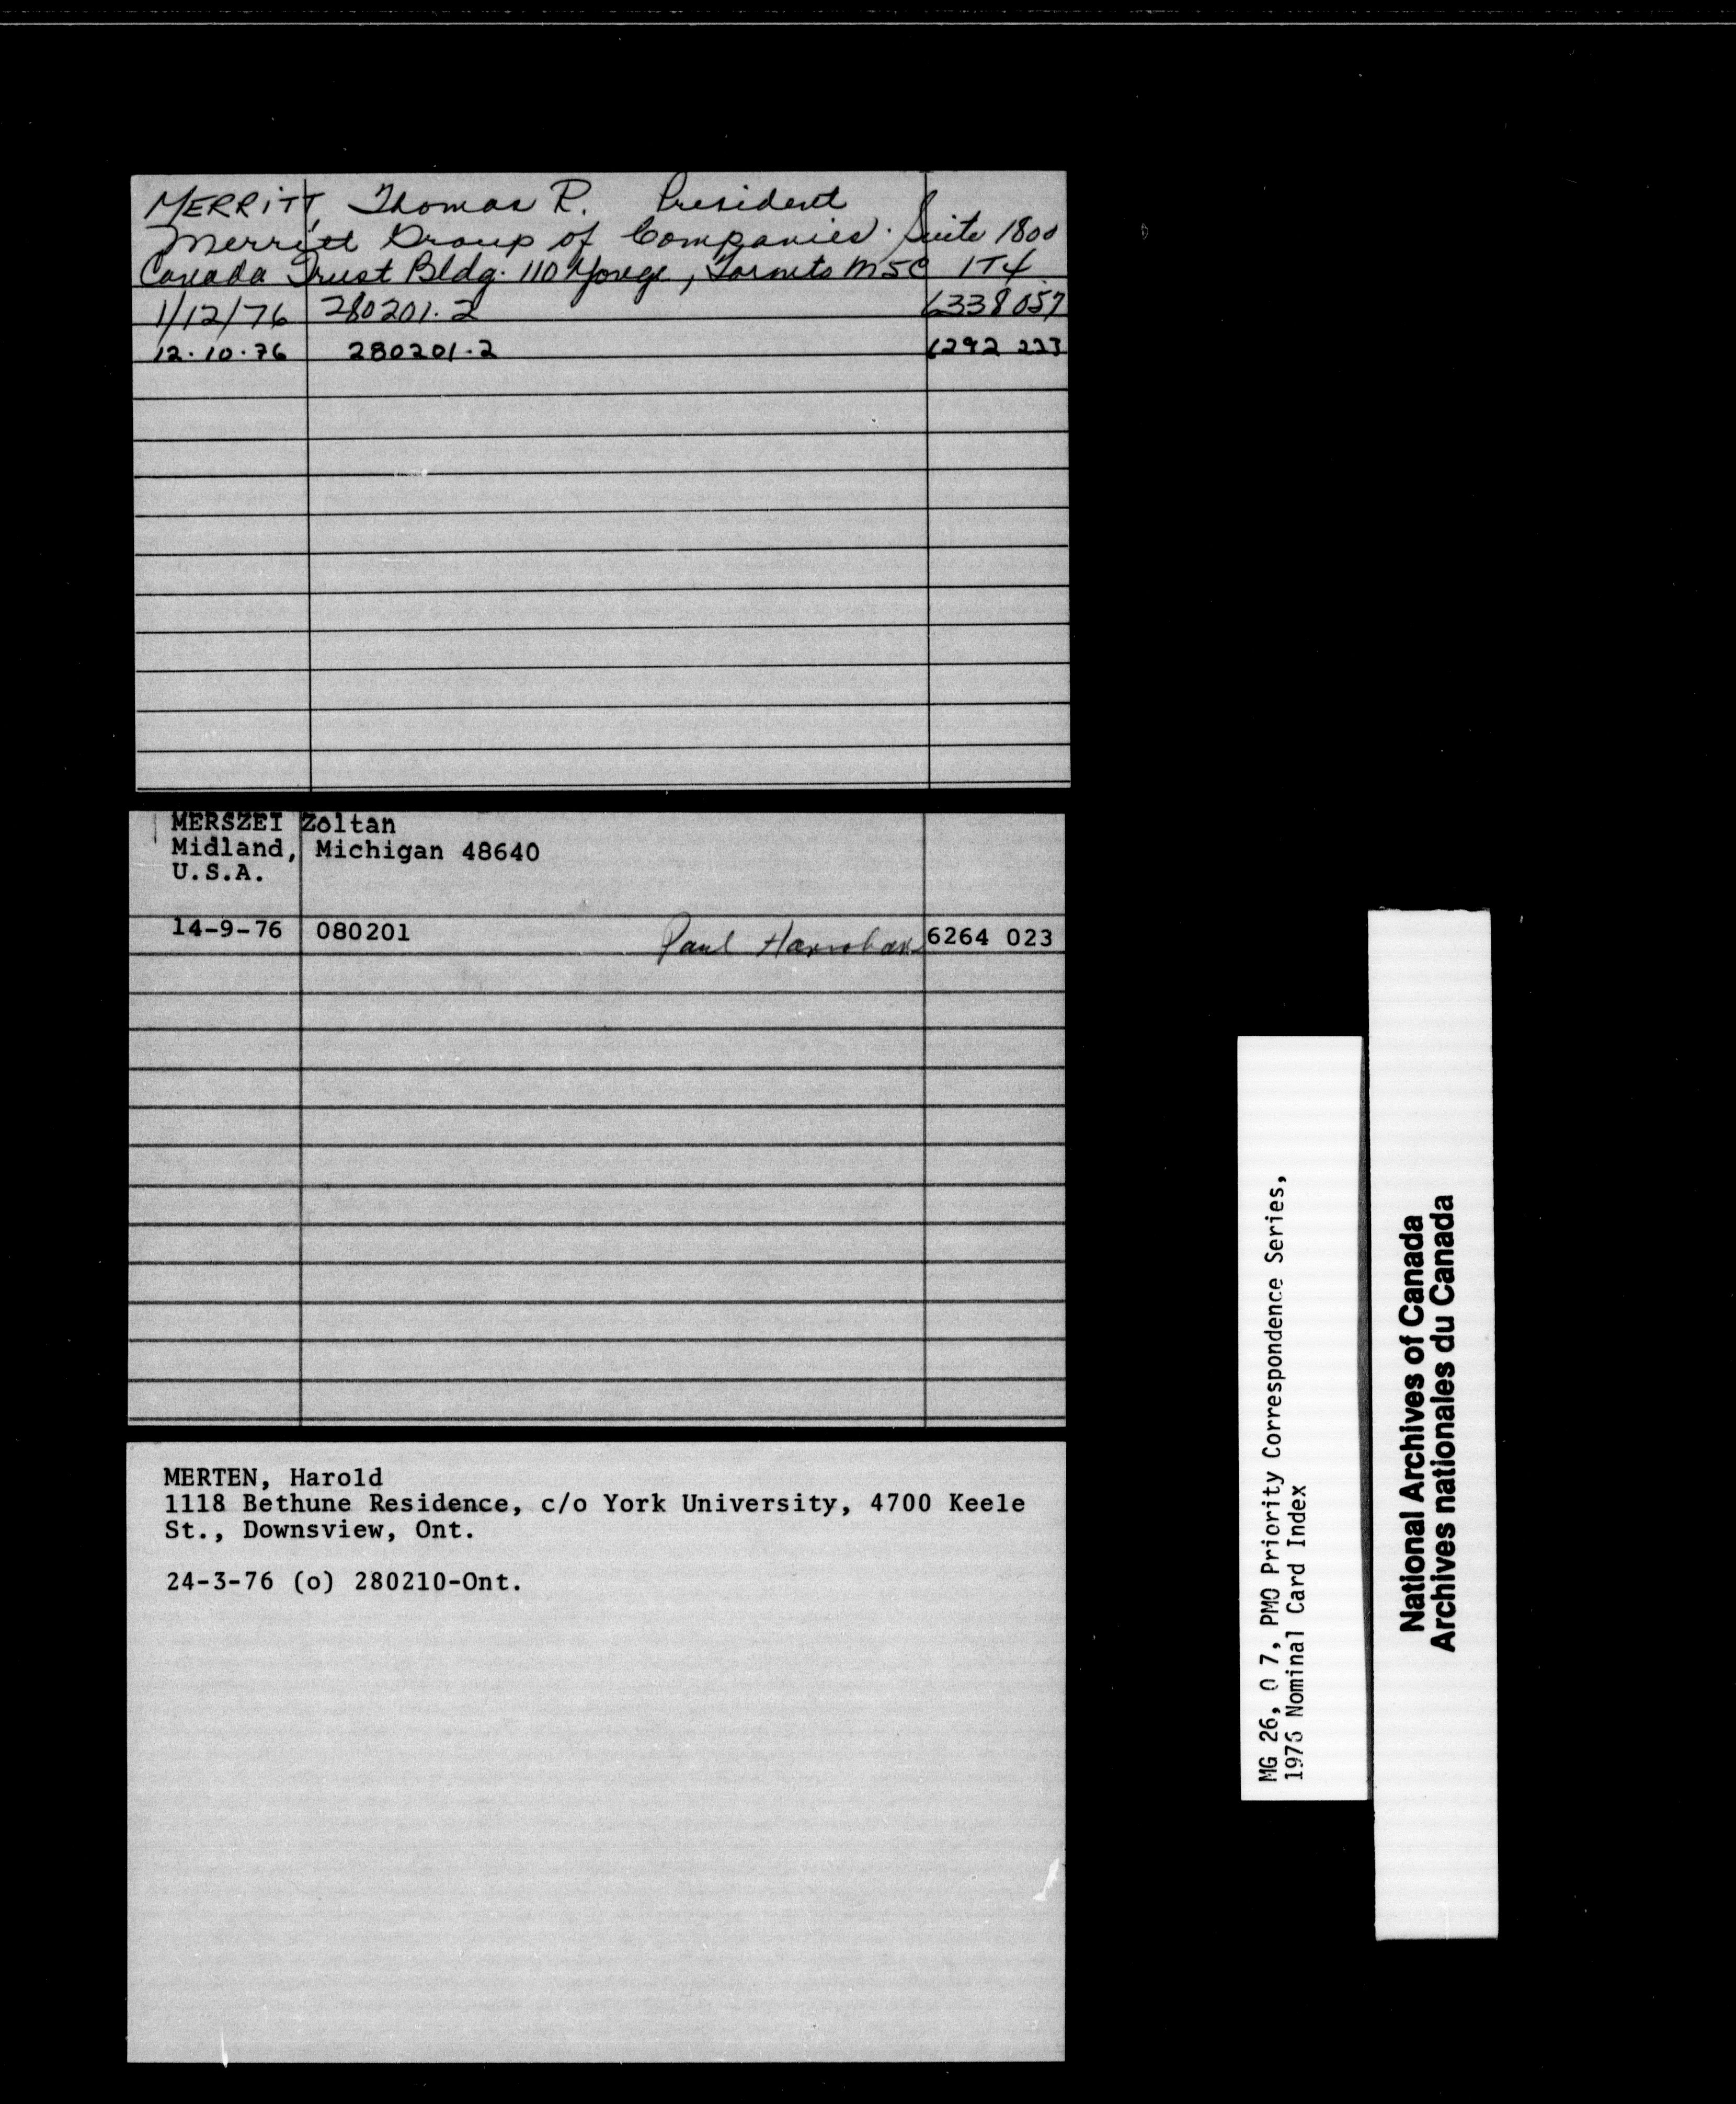 MERRITT, Thomas R. President
Merritt Group of Companies. Suite 1800
Canada Trust Bldg. 110 Yonge, Toronto M5C 1T4
1/12/76 280201.2 6338 057
12.10.76 280201.2 6292 223
MERSZEI Zoltan
Midland, Michigan 48640
U.S.A.
14-9-76 080201 Paul 6264 023
MERTEN, Harold
1118 Bethune Residence, c/o York University, 4700 Keele
St., Downsview, Ont.
24-3-76 (o) 280210-Ont.
MG 26, O 7, PMO Priority Correspondence Series,
1976 Nominal Card Index
National Archives of Canada
Archives nationales du Canada